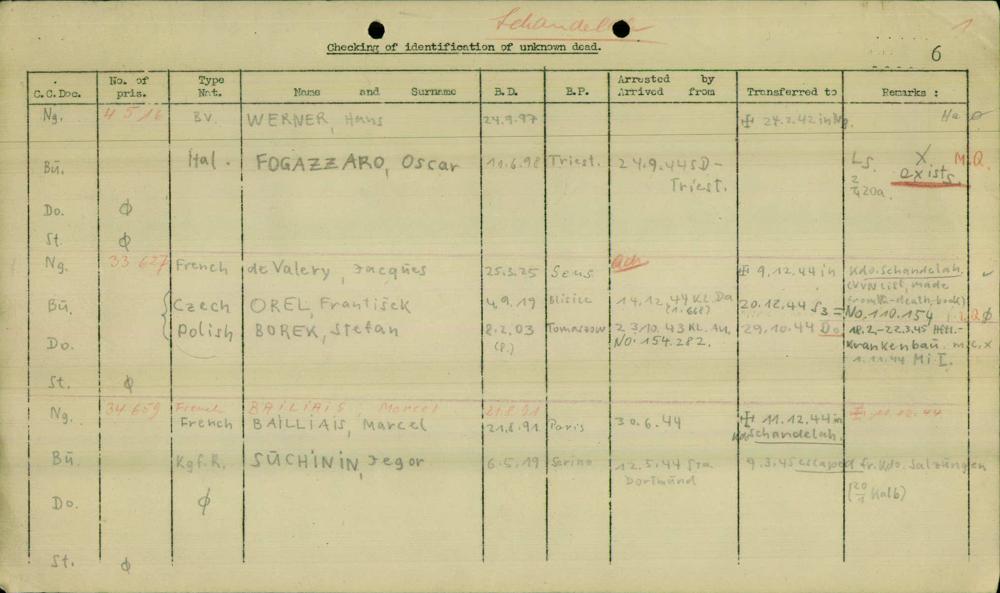 Schandelah
1
Checking of identification of unknown dead.
6
C.C.Doc. No. of pris. Type Nat. Name and Surname B.D. B.P. Arrested by Arrived from Transferred to Remarks :
Ng. 4516 BV. WERNER, Hans 24.9.97 ✠ 24.2.42 in Ng.
Bu. Ital. FOGAZZARO, Oscar 10.6.98 Triest. 24.9.44 SD- LS. X M.Q.
Triest. exists.
Do. ϕ
St. ϕ
Ng. 33 627 French de Valery, Jacques 25.3.25 Sens ✠ 9.12.44 in Kdo. Schandelah.
(VVN list, made
Bu. Czech OREL, František 4.9.19 Blisice 14.12.44 KL. Da 20.12.44 S3 = from death-book)
No. 110.154
Polish BOREK, Stefan 8.2.03 Tomaszow 23.10.43 KL. Au. 29.10.44 Do 18.2.-22.3.45 Hftl.-
Do. No. 154.282. Krankenbau.
1.11.44 Mi I.
St. ϕ
Ng. 34 659 French BAILIAIS, Marcel 21.8.91 ✠ 11.12.44
French BAILLIAIS, Marcel 21.8.91 Paris 30.6.44 ✠ 11.12.44 in
Schandelah.
Bu. Kgf.R. SUCHININ, Jegor 6.5.19 Serino 12.5.44 Sta. 9.3.45 escaped fr. Kdo. Salzungen
Dortmund
Do. ϕ (20/1 Kalb)
St. ϕ